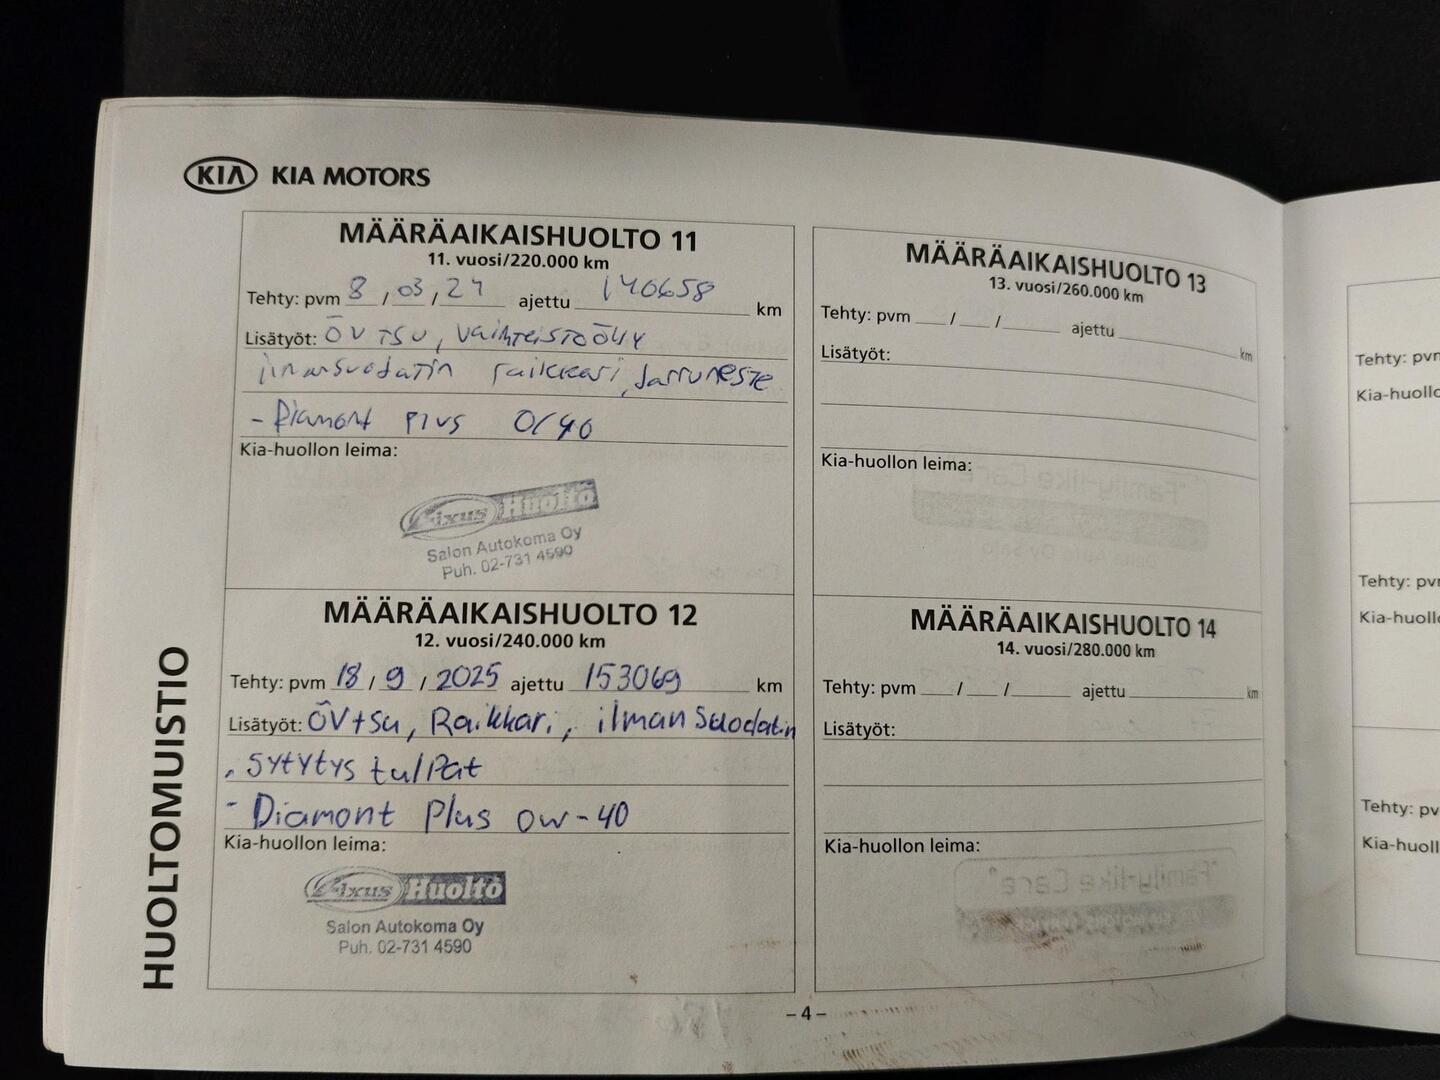 KIA KIA MOTORS
MÄÄRÄAIKAISHUOLTO 11
11. vuosi/220.000 km
Tehty: pvm 8 / 03 / 24 ajettu 140658 km
Lisätyöt: ÖVtsu, vaihteistoöljy
ilmansuodatin raikkari, Jarruneste
- Diamont Plus 0/40
Kia-huollon leima:
Fixus Huolto
Salon Autokoma Oy
Puh. 02-731 4590
MÄÄRÄAIKAISHUOLTO 12
12. vuosi/240.000 km
Tehty: pvm 18 / 9 / 2025 ajettu 153069 km
Lisätyöt: ÖVtsu, Raikkari, ilmansuodatin
, sytytys tulpat
- Diamont Plus 0w-40
Kia-huollon leima:
Fixus Huolto
Salon Autokoma Oy
Puh. 02-731 4590
MÄÄRÄAIKAISHUOLTO 13
13. vuosi/260.000 km
Tehty: pvm ___ / ___ / ______ ajettu ______ km
Lisätyöt:
Kia-huollon leima:
MÄÄRÄAIKAISHUOLTO 14
14. vuosi/280.000 km
Tehty: pvm ___ / ___ / ______ ajettu ______ km
Lisätyöt:
Kia-huollon leima:
HUOLTOMUISTIO
– 4 –
Tehty: pvm
Kia-huollo
Tehty: pv
Kia-huollo
Tehty: pv
Kia-huoll